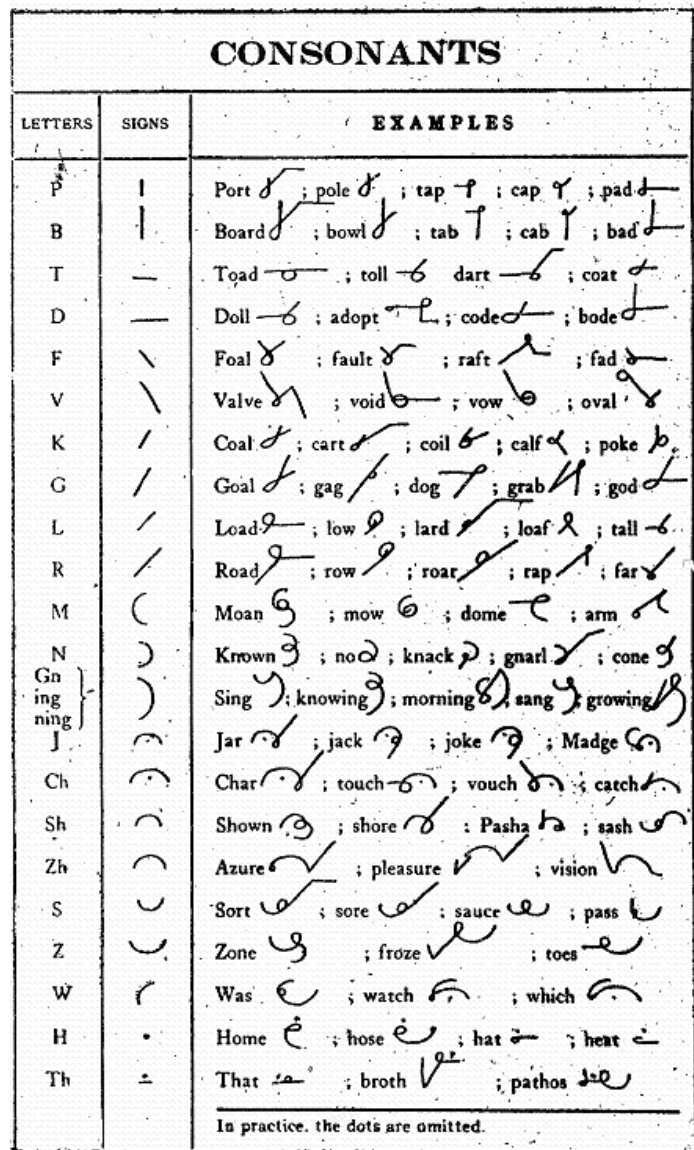 CONSONANTS
LETTERS SIGNS EXAMPLES
P Port ; pole ; tap ; cap ; pad
B Board ; bowl ; tab ; cab ; bad
T Toad ; toll dart ; coat
D Doll ; adopt ; code ; bode
F Foal ; fault ; raft ; fad
V Valve ; void ; vow ; oval
K Coal ; cart ; coil ; calf ; poke
G Goal ; gag ; dog ; grab ; god
L Load ; low ; lard ; loaf ; tall
R Road ; row ; roar ; rap ; far
M Moan ; mow ; dome ; arm
N Known ; no ; knack ; gnarl ; cone
Gn
ing Sing ; knowing ; morning ; sang ; growing
ning
J Jar ; jack ; joke ; Madge
Ch Char ; touch ; vouch ; catch
Sh Shown ; shore : Pasha ; sash
Zh Azure ; pleasure ; vision
S Sort ; sore ; sauce ; pass
Z Zone ; froze ; toes
W Was ; watch ; which
H Home ; hose ; hat ; heat
Th That ; broth ; pathos
In practice. the dots are omitted.